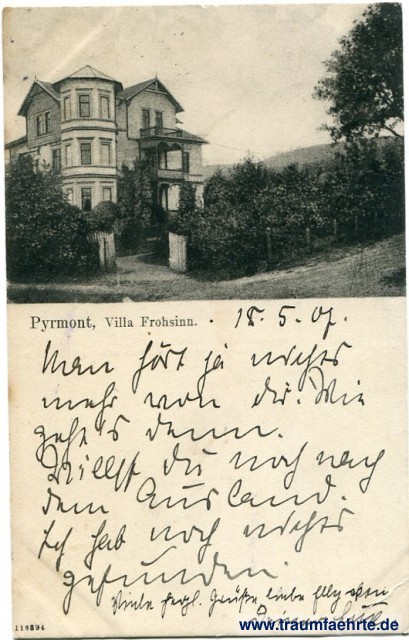 Pyrmont, Villa Frohsinn. 18.5.07.
Man hört ja nichts
mehr von dir. Wie
geht's denn.
Willst du noch nach
dem Ausland.
Ich hab noch nichts
gefunden.
Viele herzl. Grüße, liebe Elly von
118394
www.traumfaehrte.de